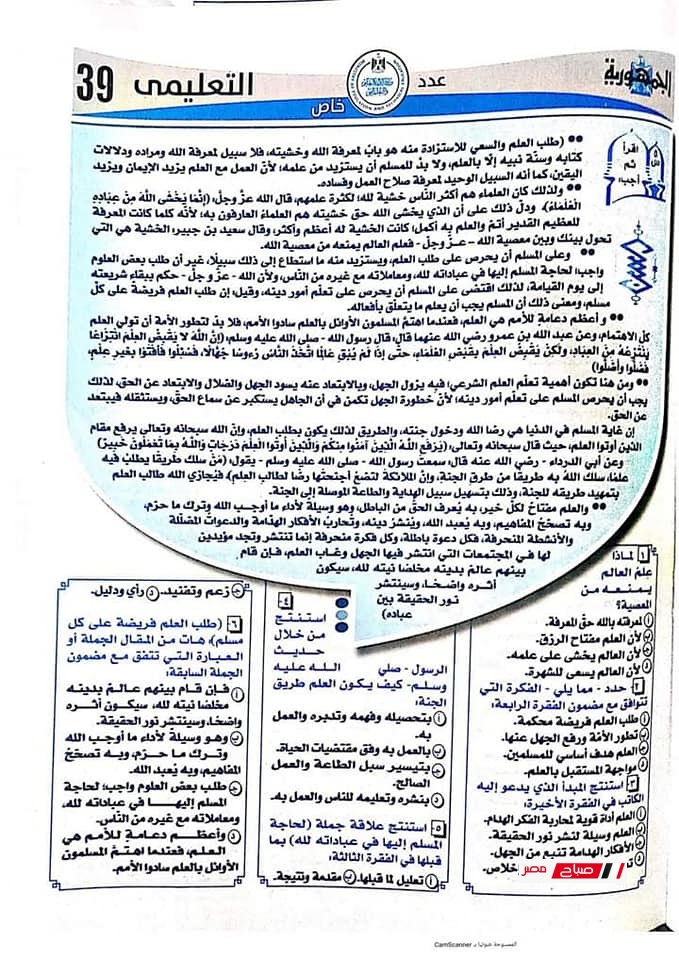 الجمهورية
عدد
خاص
التعليمى
39
اقرأ
ثم
أجب:
●● (طلب العلم والسعي للاستزادة منه هو بابٌ لمعرفة الله وخشيته، فلا سبيل لمعرفة الله ومراده ودلالات
كتابه وسنّة نبيه إلّا بالعلم، ولا بدّ للمسلم أن يستزيد من علمه؛ لأنّ العمل مع العلم يزيد الإيمان ويزيد
اليقين، كما أنه السبيل الوحيد لمعرفة صلاح العمل وفساده.
●● ولذلك كان العلماء هم أكثر الناس خشية لله؛ لكثرة علمهم، قال الله عزّ وجلّ، (إنّما يخشى اللّه من عباده
العُلماءُ)، ودلّ ذلك على أن الذي يخشى الله حق خشيته هم العلماءُ العارفون به؛ لأنه كلما كانت المعرفة
للعظيم القدير أتمّ والعلم به أكمل؛ كانت الخشية له أعظم وأكثر، وقال سعيد بن جبير، الخشية هي التي
تحول بينك وبين معصية الله - عزّ وجلّ - فعلم العالم يمنعه من معصية الله.
●● وعلى المسلم أن يحرص على طلب العلم، ويستزيد منه ما استطاع إلى ذلك سبيلًا، غير أن طلب بعض العلوم
واجب؛ لحاجة المسلم إليها في عباداته لله، ومعاملاته مع غيره من الناس، ولأن الله - عزّ وجلّ - حكم ببقاء شريعته
إلى يوم القيامة، لذلك اقتضى على المسلم أن يحرص على تعلّم أمور دينه، وقيل، إن طلب العلم فريضة على كلّ
مسلم، ومعنى ذلك أن المسلم يجب أن يعلم ما يتعلّق بأفعاله.
●● و أعظم دعامة للأمم هي العلم، فعندما اهتمّ المسلمون الأوائل بالعلم سادوا الأمم، فلا بدّ لتطور الأمة أن تولي العلم
كلّ الاهتمام، وعن عبد الله بن عمرو رضي الله عنهما قال، قال رسول الله - صلى الله عليه وسلم، (إنّ اللّه لا يقبض العلم انتزاعًا
ينتزعُهُ من العبادِ، ولكن يقبضُ العلمَ بقبضِ العُلماءِ، حتّى إذا لم يُبقِ عالِمًا اتّخذ النّاسُ رءوسًا جُهّالًا، فسُئلوا فأفتوا بغير علمٍ،
فضلّوا وأضلّوا)
●● ومن هنا تكون أهمية تعلّم العلم الشرعي؛ فبه يزول الجهل، وبالابتعاد عنه يسود الجهل والضلال والابتعاد عن الحق، لذلك
يجب أن يحرص المسلم على تعلّم أمور دينه؛ لأنّ خطورة الجهل تكمن في أن الجاهل يستكبر عن سماع الحقّ، ويستثقله فيبتعد
عن الحق.
إن غاية المسلم في الدنيا هي رضا الله ودخول جنته، والطريق لذلك يكون بطلب العلم، وإنّ الله سبحانه وتعالى يرفع مقام
الذين أوتوا العلم، حيث قال سبحانه وتعالى، (يرفع اللّهُ الّذين آمنوا منكم والّذين أوتوا العلم درجاتٍ واللّهُ بما تعملون خبيرٌ)
وعن أبي الدرداء - رضي الله عنه قال، سمعت رسول الله - صلى الله عليه وسلم - يقول، (من سلك طريقًا يطلب فيه
علمًا، سلك اللهُ به طريقًا من طرقِ الجنةِ، وإنّ الملائكةَ لتضعُ أجنحتَها رضًا لطالبِ العلمِ)، فيُجازي الله طالب العلم
بتمهيد طريقه للجنة، وذلك بتسهيل سبيل الهداية والطاعة الموصلة إلى الجنة.
●● والعلم مفتاحٌ لكلّ خير، به يُعرف الحق من الباطل، وهو وسيلةٌ لأداء ما أوجب الله وترك ما حرّم،
وبه تصحّحُ المفاهيم، وبه يُعبد الله، ويُنشرُ دينه، وتحاربُ الأفكار الهدّامة والدعوات المضلّلة
والأنشطة المنحرفة، فكل دعوة باطلة، وكل فكرة منحرفة إنما تنتشر وتجد مؤيدين
لها في المجتمعات التي انتشر فيها الجهل وغاب العلم، فإن قام
بينهم عالمٌ بدينه مخلصًا نيته لله، سيكون
أثره واضحًا، وسينتشر
نور الحقيقة بين
عباده)
١ لماذا
علمُ العالم
يمنعه من
المعصية؟
أ لمعرفته بالله حقّ المعرفة.
ب لأن العلم مفتاح الرزق.
ج لأن العالم يخشى على علمه.
د لأن العالم يسعى للشهرة.
٢ حدد - مما يلي - الفكرة التي
تتوافق مع مضمون الفقرة الرابعة:
أ طلب العلم فريضة محكمة.
ب تطور الأمة ورفع الجهل عنها.
ج العلم هدف أساسي للمسلمين.
د مواجهة المستقبل بالعلم.
٣ استنتج المبدأ الذي يدعو إليه
الكاتب في الفقرة الأخيرة:
أ العلم أداة قوية لمحاربة الفكر الهدام.
ب العلم وسيلة لنشر نور الحقيقة.
ج الأفكار الهدامة تنبع من الجهل.
خلاص.
٤-
استنتج
من خلال
حديث
الرسول - صلي الله عليه
وسلم- كيف يكون العلم طريق
الجنة:
أ بتحصيله وفهمه وتدبره والعمل
به.
ب بالعمل به وفق مقتضيات الحياة.
ج بتيسير سبل الطاعة والعمل
الصالح.
د بنشره وتعليمه للناس والعمل به.
٥ استنتج علاقة جملة (لحاجة
المسلم إليها في عباداته لله) بما
قبلها في الفقرة الثالثة:
أ تعليل لما قبلها. ب مقدمة ونتيجة.
ج زعم وتفنيد. د رأي ودليل.
٦ (طلب العلم فريضة على كل
مسلم)، هات من المقال الجملة أو
العبارة التي تتفق مع مضمون
الجملة السابقة:
أ فإن قام بينهم عالمٌ بدينه
مخلصًا نيته لله، سيكون أثره
واضحًا، وسينتشر نور الحقيقة.
ب وهو وسيلةٌ لأداء ما أوجب الله
وترك ما حرّم، وبه تصحّحُ
المفاهيم، وبه يُعبد الله.
ج طلب بعض العلوم واجب؛ لحاجة
المسلم إليها في عباداته لله،
ومعاملاته مع غيره من الناس.
د وأعظم دعامة للأمم هي
العلم، فعندما اهتمّ المسلمون
الأوائل بالعلم سادوا الأمم.
صباح مصر
الممسوحة ضوئيا بـ CamScanner